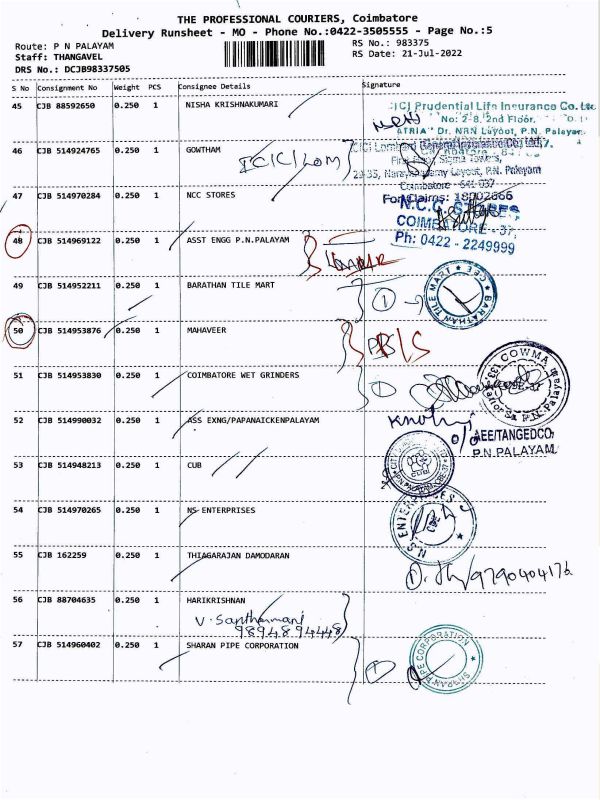 THE PROFESSIONAL COURIERS, Coimbatore
Delivery Runsheet - MO - Phone No.:0422-3505555 - Page No.:5
Route: P N PALAYAM
Staff: THANGAVEL
DRS No.: DCJB98337505
RS No.: 983375
RS Date: 21-Jul-2022
S No Consignment No Weight PCS Consignee Details Signature
45 CJB 88592650 0.250 1 NISHA KRISHNAKUMARI
ICICI Prudential Life Insurance Co. Ltd
No: 2-8, 2nd Floor,
ATRIA" Dr. NRN Layout, P.N. Palayam
46 CJB 514924765 0.250 1 GOWTHAM
ICICI LOM
ICICI Lombard General Insurance Co Ltd
First Floor, Sigma Towers,
Layout, P.N. Palayam
Coimbatore - 641 037
47 CJB 514970284 0.250 1 NCC STORES
For Claims: 18002666
N.C.C. STORES
COIMBATORE-37,
Ph: 0422 - 2249999
48 CJB 514969122 0.250 1 ASST ENGG P.N.PALAYAM
49 CJB 514952211 0.250 1 BARATHAN TILE MART
1
BARATHAN TILE MART CBE
50 CJB 514953876 0.250 1 MAHAVEER
51 CJB 514953830 0.250 1 COIMBATORE WET GRINDERS
1
COWMA
P.N. Palayam
52 CJB 514990032 0.250 1 ASS EXNG/PAPANAICKENPALAYAM
AEE/TANGEDCO
P.N PALAYAM
53 CJB 514948213 0.250 1 CUB
54 CJB 514970265 0.250 1 NS ENTERPRISES
N.S ENTERPRISES
55 CJB 162259 0.250 1 THIAGARAJAN DAMODARAN
1
9790404176
56 CJB 88704635 0.250 1 HARIKRISHNAN
V. Santhamani
9894894448
57 CJB 514960402 0.250 1 SHARAN PIPE CORPORATION
1
SHARAN PIPE CORPORATION